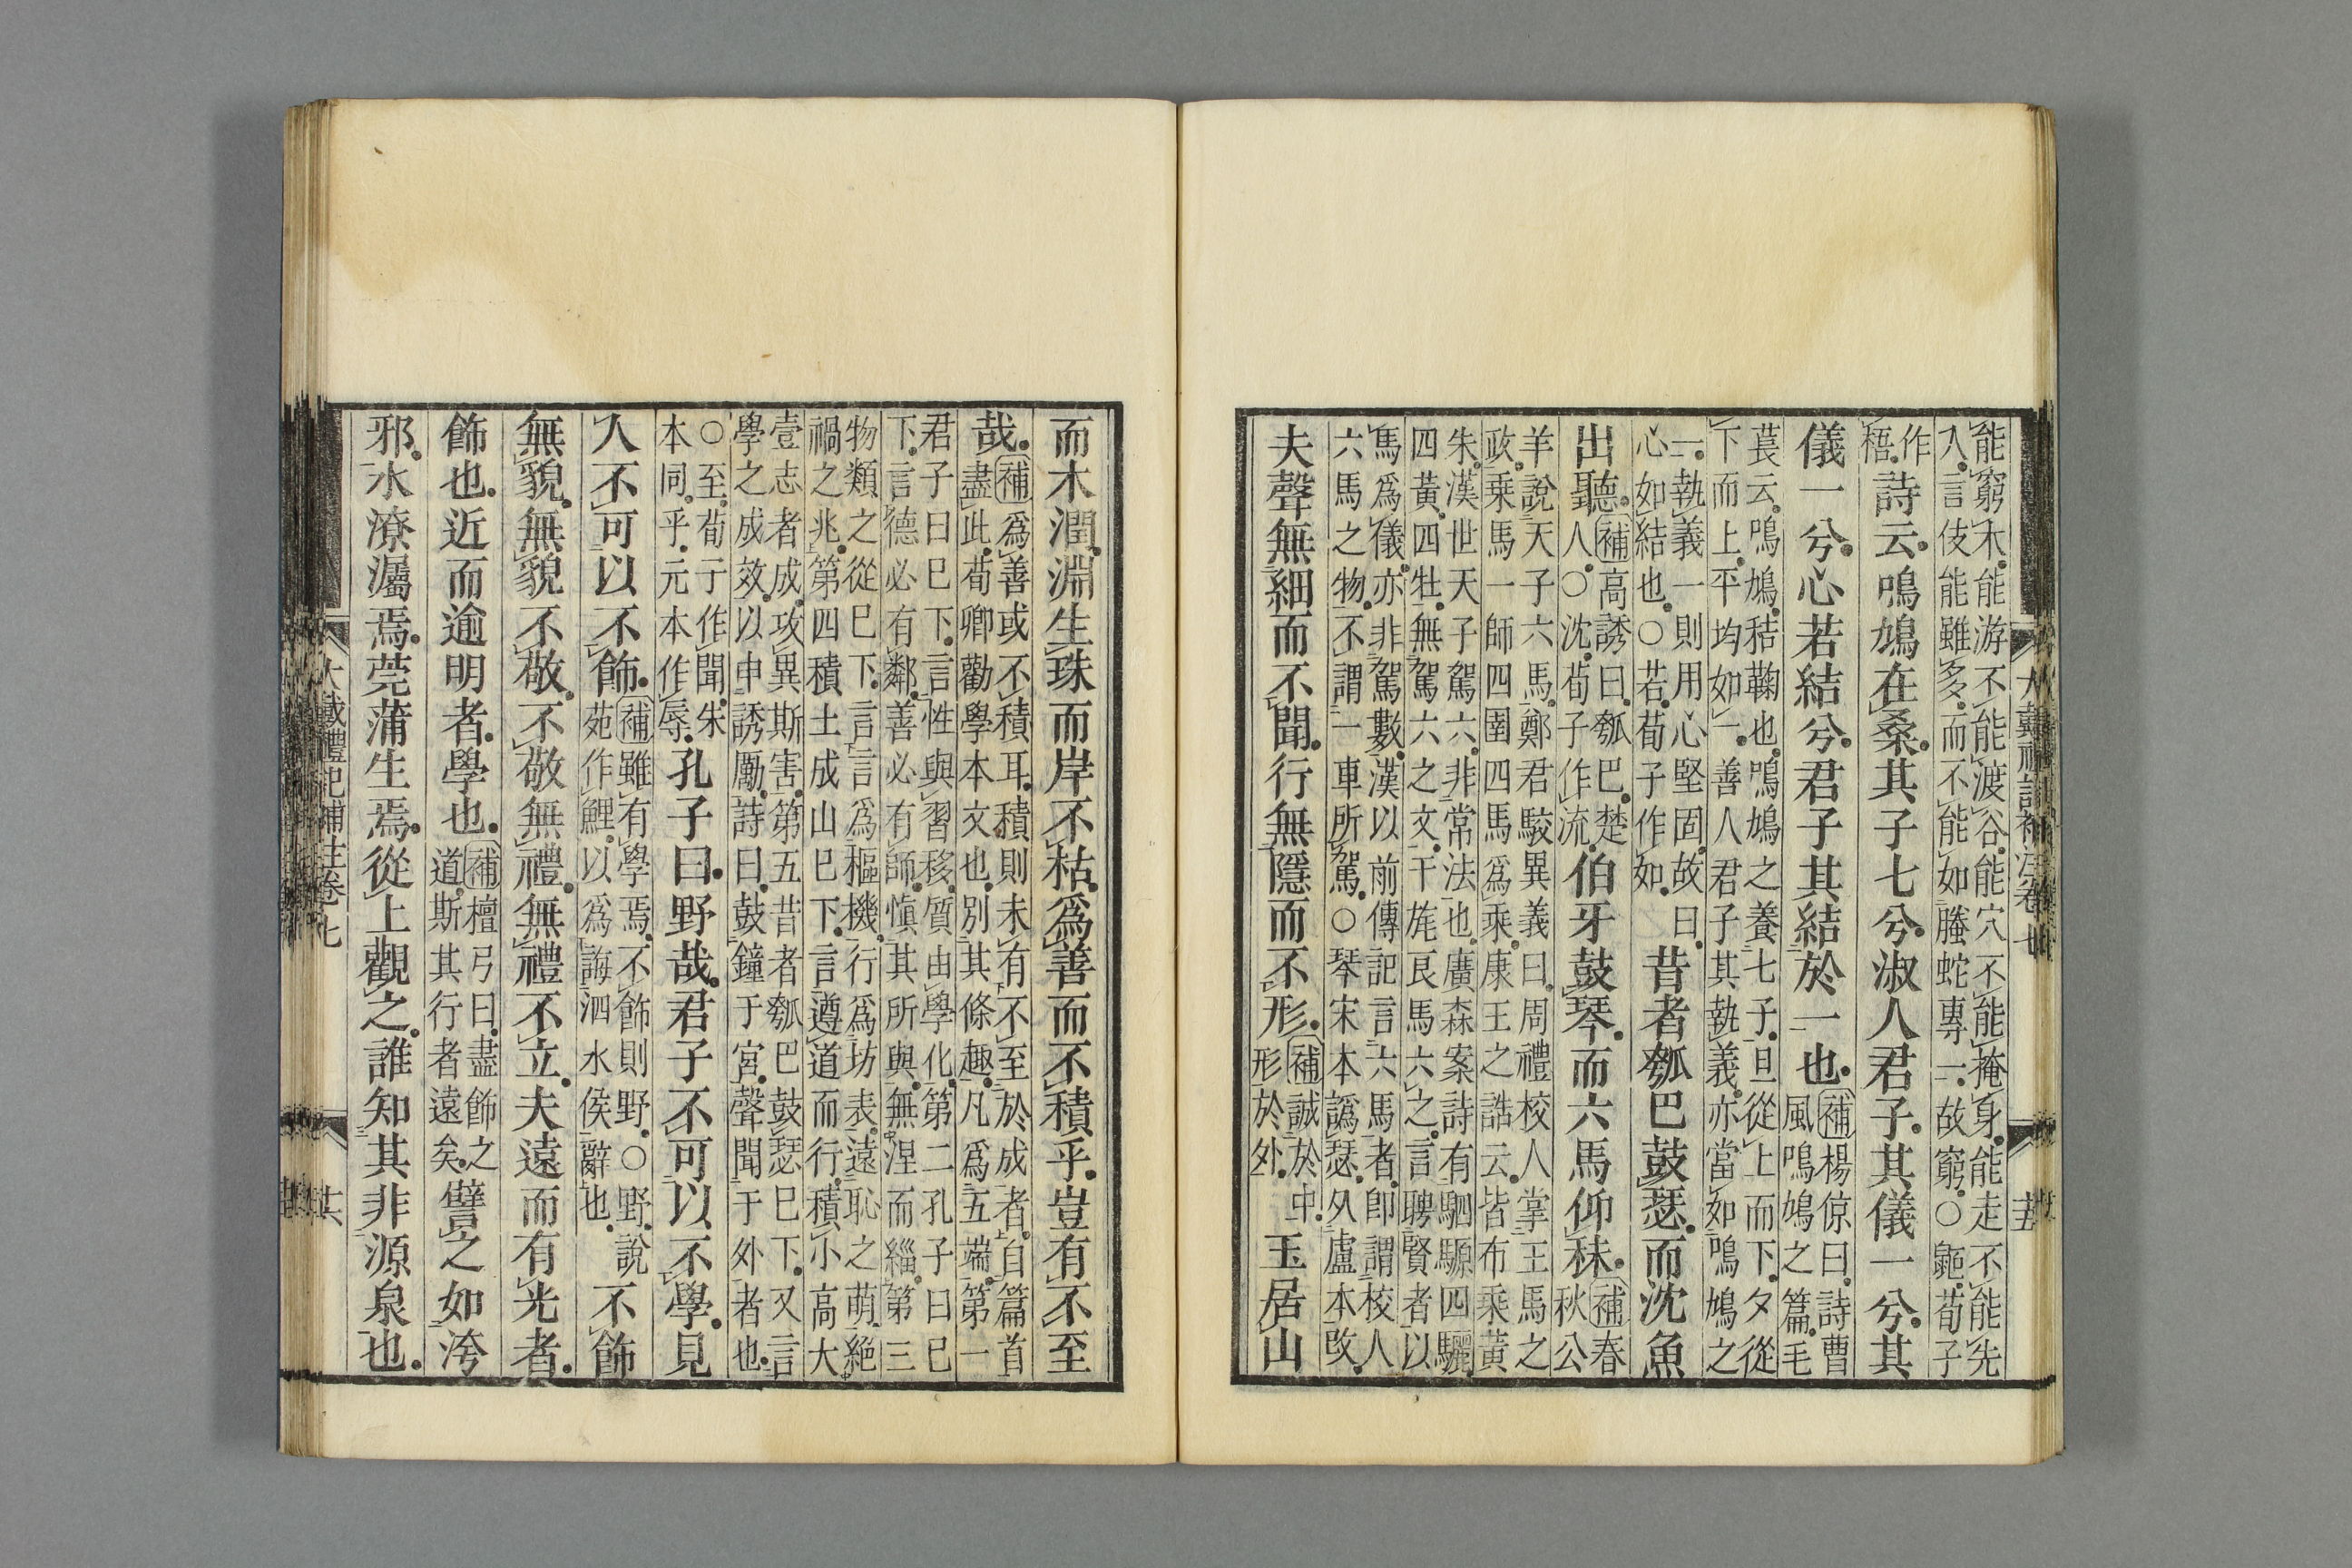 能窮木。能游不能渡谷。能穴不能掩身。能走不能先
人。言伎能雖多。而不能如螣蛇專一。故窮。○鼫。荀子
作
梧。
詩云。鳲鳩在桑。其子七兮。淑人君子。其儀一兮。其
儀一兮。心若結兮。君子其結於一也。
補楊倞曰。詩曹
風鳲鳩之篇。毛
萇云。鳲鳩。秸鞠也。鳲鳩之養七子。旦從上而下。夕從
下而上。平均如一。善人君子其執義。亦當如鳲鳩之
一。執義一則用心堅固。故曰。
心如結也。○若。荀子作如。
昔者瓠巴鼓瑟。而沈魚
出聽。
補高誘曰。瓠巴。楚
人。○沈。荀子作流。
伯牙鼓琴。而六馬仰秣。
補春
秋公
羊說。天子六馬。鄭君駁異義曰。周禮校人掌王馬之
政。乘馬一師四圉四馬爲乘。康王之誥云。皆布乘黃
朱。漢世天子駕六。非常法也。廣森案詩有駟騵四驪
四黃。四牡。無駕六之文。干旄良馬六之。言聘賢者以
馬爲儀。亦非駕數。漢以前傳記言六馬者。卽謂校人
六馬之物。不謂一車所駕。○琴宋本譌瑟。从盧本改。
夫聲無細而不聞。行無隱而不形。
補誠於中。
形於外。
玉居山
大戴禮記補注卷七
十五
而木潤。淵生珠而岸不枯。爲善而不積乎。豈有不至
哉。
補爲善或不積耳。積則未有不至於成者。自篇首
盡此。荀卿勸學本文也。別其條趣。凡爲五端。第一
君子曰巳下。言性與習移。質由學化。第二孔子曰巳
下。言德必有鄰。善必有師。愼其所與。無涅而緇。第三
物類之從巳下。言言爲樞機。行爲坊表。遠恥之萌。絶
禍之兆。第四積土成山巳下。言遵道而行。積小高大
壹志者成。攻異斯害。第五昔者瓠巴鼓瑟巳下。又言
學之成效。以申誘勵。詩曰。鼓鐘于宮。聲聞于外者也。
○至。荀子作聞。朱
本同。乎。元本作辱。
孔子曰。野哉。君子不可以不學。見
人不可以不飾。
補雖有學焉。不飾則野。○野。說
苑作鯉。以爲誨泗水侯辭也。
不飾
無貌。無貌不敬。不敬無禮。無禮不立。夫遠而有光者。
飾也。近而逾明者。學也。
補檀弓曰。盡飾之
道。斯其行者遠矣。
譬之如洿
邪。水潦灟焉。莞蒲生焉。從上觀之。誰知其非源泉也。
大戴禮記補注卷七